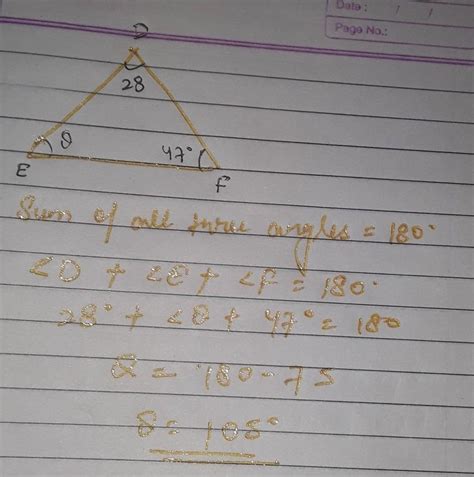 Date: / /
Page No.:
D
28
θ
47°
E
F
Sum of all three angles = 180°
∠D + ∠E + ∠F = 180°
28° + ∠θ + 47° = 180
θ = 180 - 75
θ = 105°